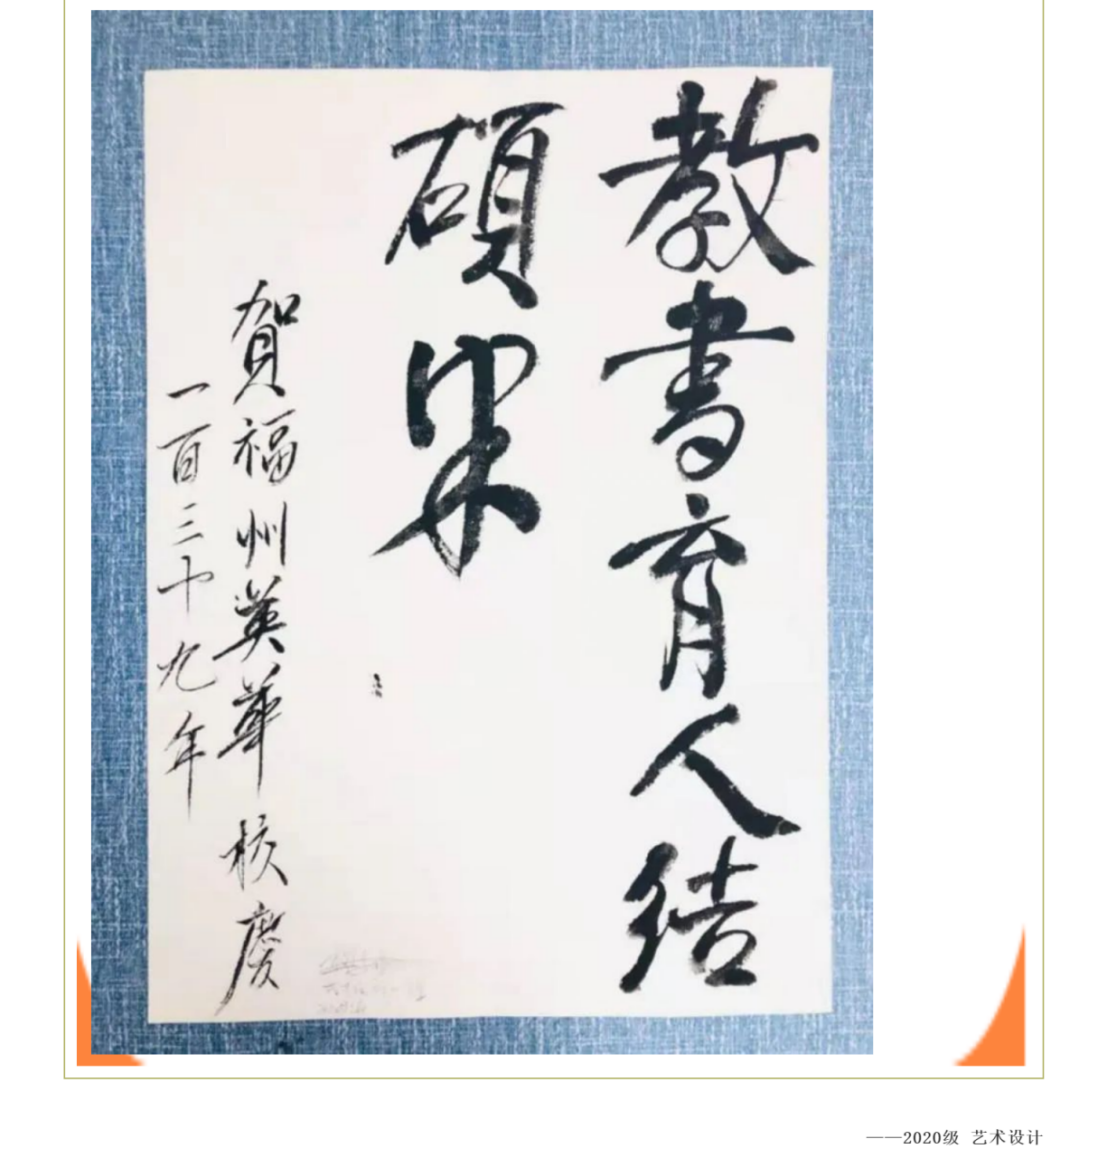 教書育人结
碩果
賀福州英華校慶
一百三十九年
——2020级 艺术设计